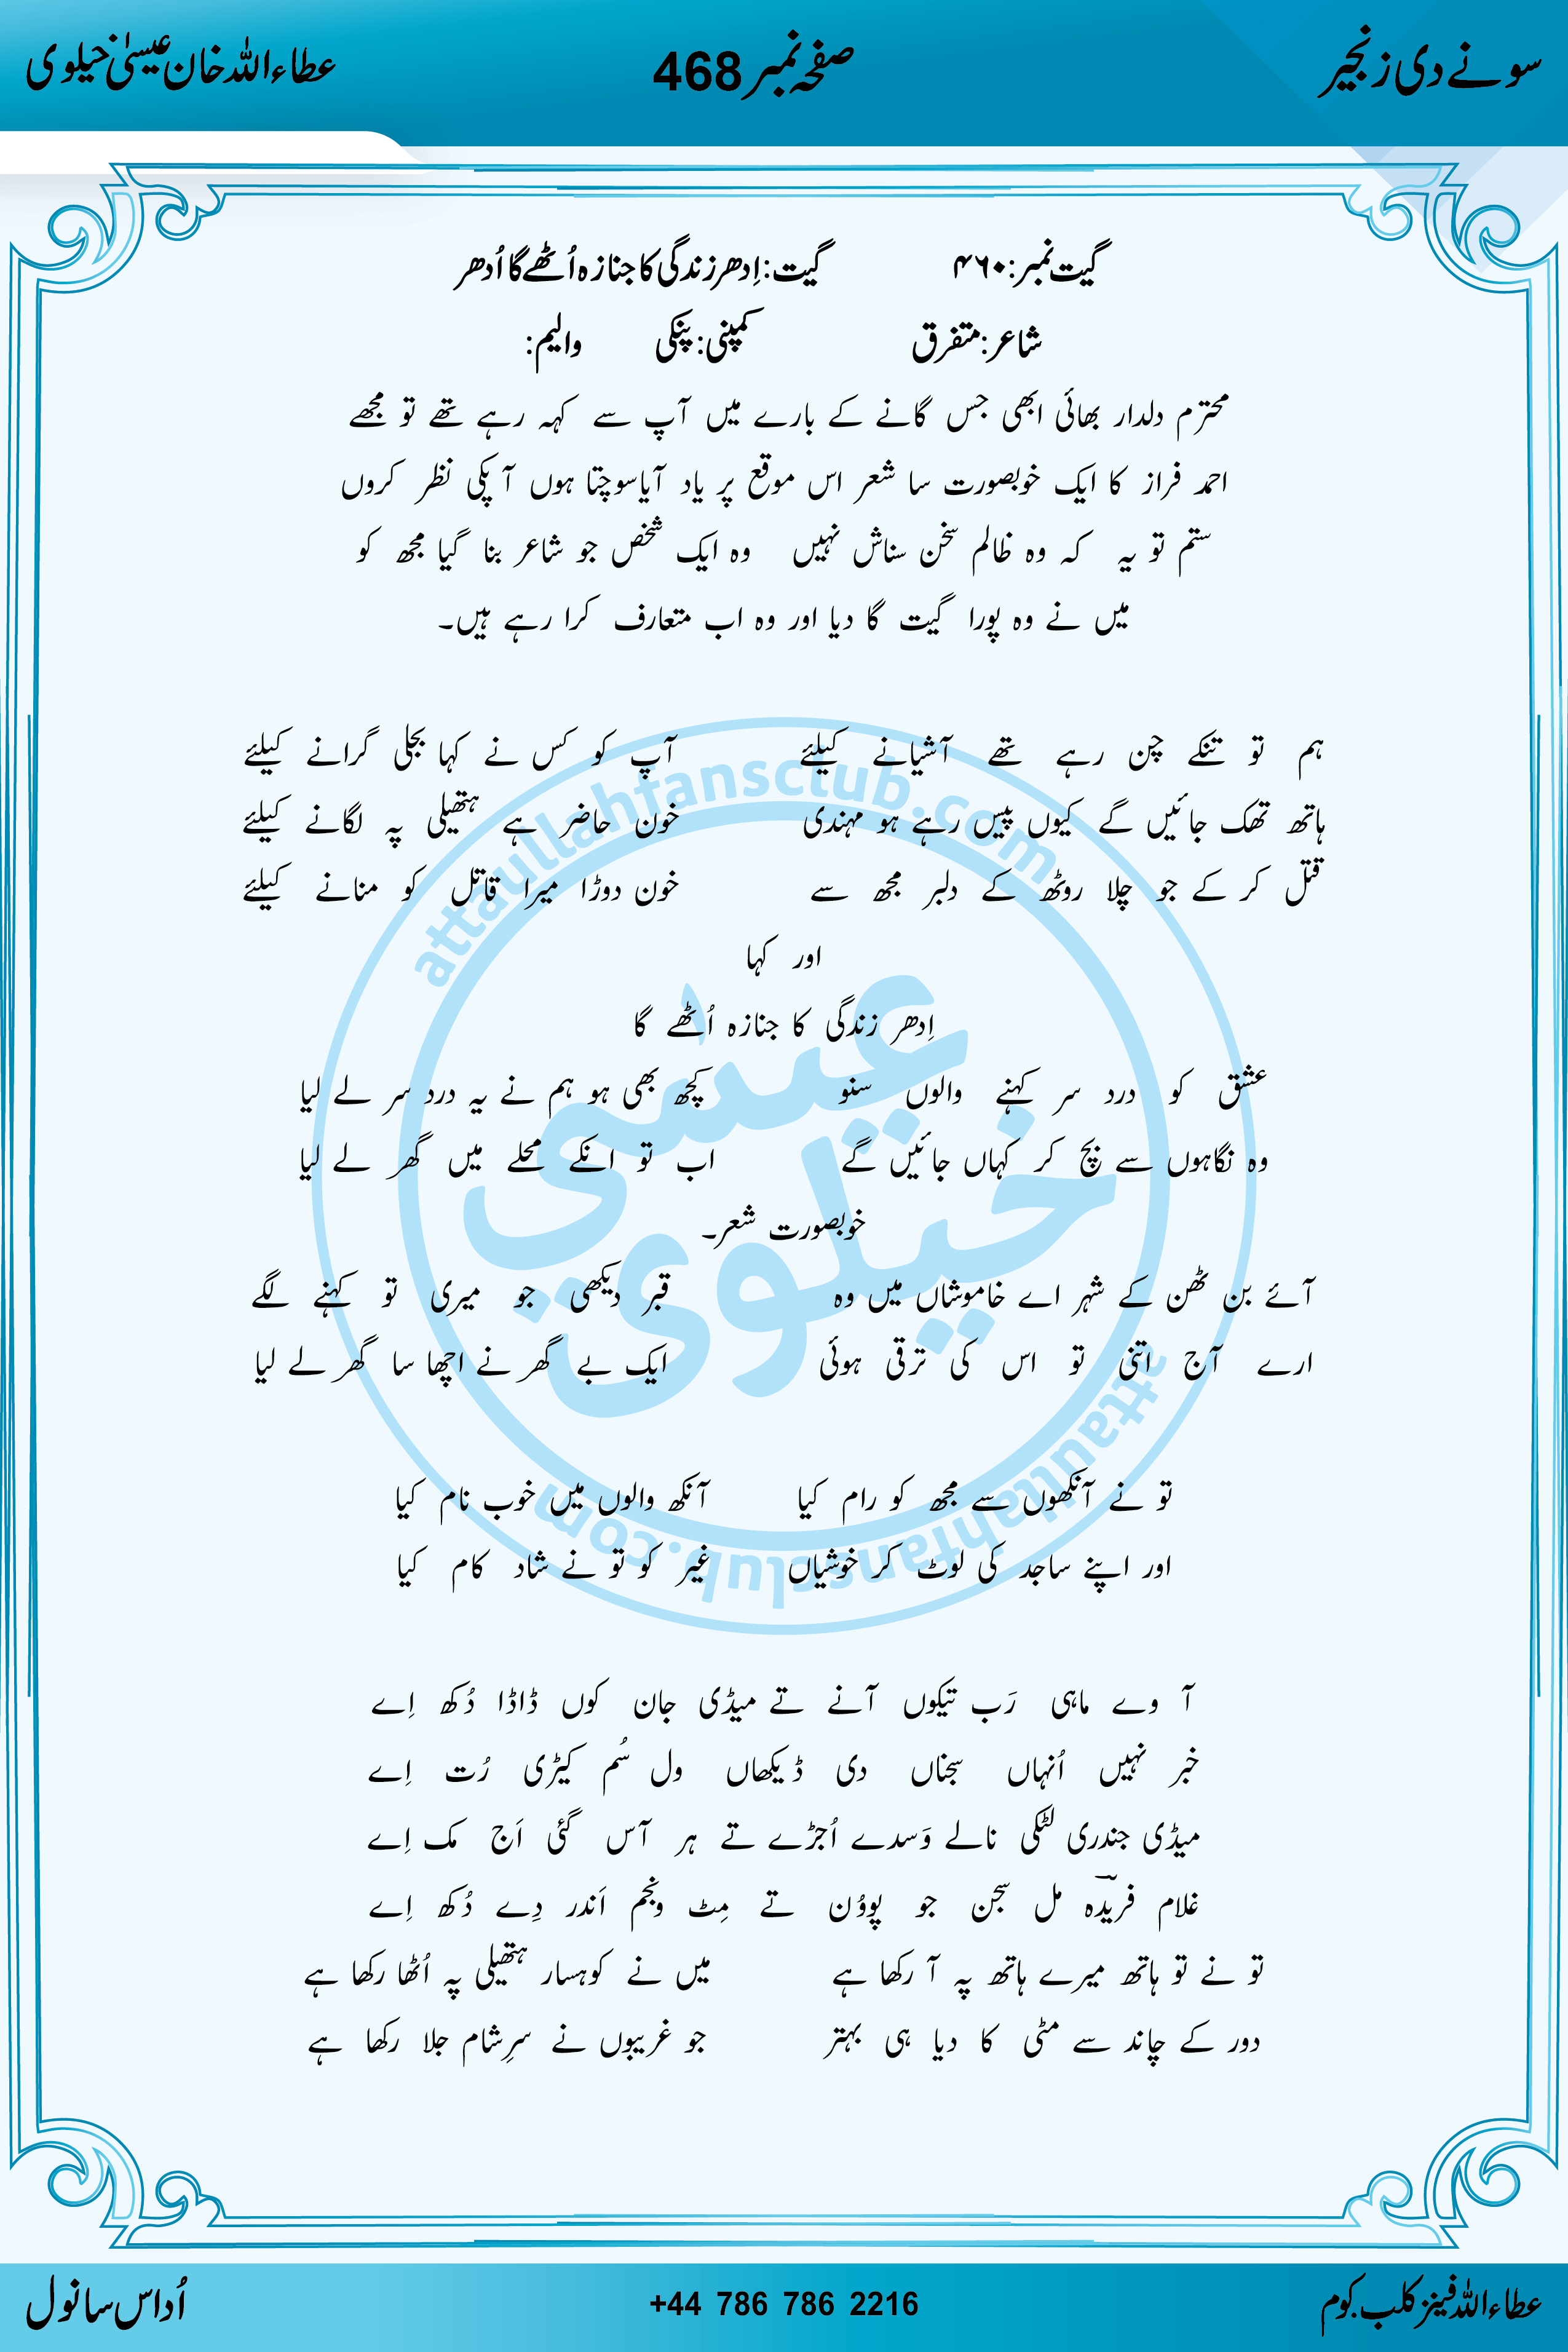 سونے دی زنجیر صفحہ نمبر 468 عطاءاللہ خان عیسیٰ خیلوی
گیت نمبر: ۴۶۰ گیت: اِدھر زندگی کا جنازہ اُٹھے گا اُدھر
شاعر: متفرق کمپنی: پنکی والیم:
محترم دلدار بھائی ابھی جس گانے کے بارے میں آپ سے کہہ رہے تھے تو مجھے
احمد فراز کا ایک خوبصورت سا شعر اس موقع پر یاد آیا سوچتا ہوں آپکی نظر کروں
ستم تو یہ کہ وہ ظالم سخن سناش نہیں وہ ایک شخص جو شاعر بنا گیا مجھ کو
میں نے وہ پورا گیت گا دیا اور وہ اب متعارف کرا رہے ہیں۔
ہم تو تنکے چن رہے تھے آشیانے کیلئے آپ کو کس نے کہا بجلی گرانے کیلئے
ہاتھ تھک جائیں گے کیوں پیس رہے ہو مہندی خون حاضر ہے ہتھیلی پہ لگانے کیلئے
قتل کر کے جو چلا روٹھ کے دلبر مجھ سے خون دوڑا میرا قاتل کو منانے کیلئے
اور کہا
اِدھر زندگی کا جنازہ اُٹھے گا
عشق کو درد سر کہنے والوں سنو کچھ بھی ہو ہم نے یہ درد سر لے لیا
وہ نگاہوں سے بچ کر کہاں جائیں گے اب تو انکے محلے میں گھر لے لیا
خوبصورت شعر۔
آئے بن ٹھن کے شہر اے خاموشاں میں وہ قبر دیکھی جو میری تو کہنے لگے
ارے آج اتنی تو اس کی ترقی ہوئی ایک بے گھر نے اچھا سا گھر لے لیا
تو نے آنکھوں سے مجھ کو رام کیا آنکھ والوں میں خوب نام کیا
اور اپنے ساجد کی لوٹ کر خوشیاں غیر کو تو نے شاد کام کیا
آ وے ماہی رَب تیکوں آنے تے میڈی جان کوں ڈاڈا دُکھ اِے
خبر نہیں اُنہاں سجناں دی ڈیکھاں ول سُم کیڑی رُت اِے
میڈی جندری لٹکی نالے وَسدے اُجڑے تے ہر آس گئی اَج مک اِے
غلام فریدؔہ مل سجن جو پوؤن تے مِٹ ونجم اَندر دِے دُکھ اِے
تو نے تو ہاتھ میرے ہاتھ پہ آ رکھا ہے میں نے کوہسار ہتھیلی پہ اُٹھا رکھا ہے
دور کے چاند سے مٹی کا دیا ہی بہتر جو غریبوں نے سرِشام جلا رکھا ہے
attaullahfansclub.com
عیسیٰ
خیلوی
attaullahfansclub.com
عطاءاللہ فینز کلب.کوم +44 786 786 2216 اُداس سانول